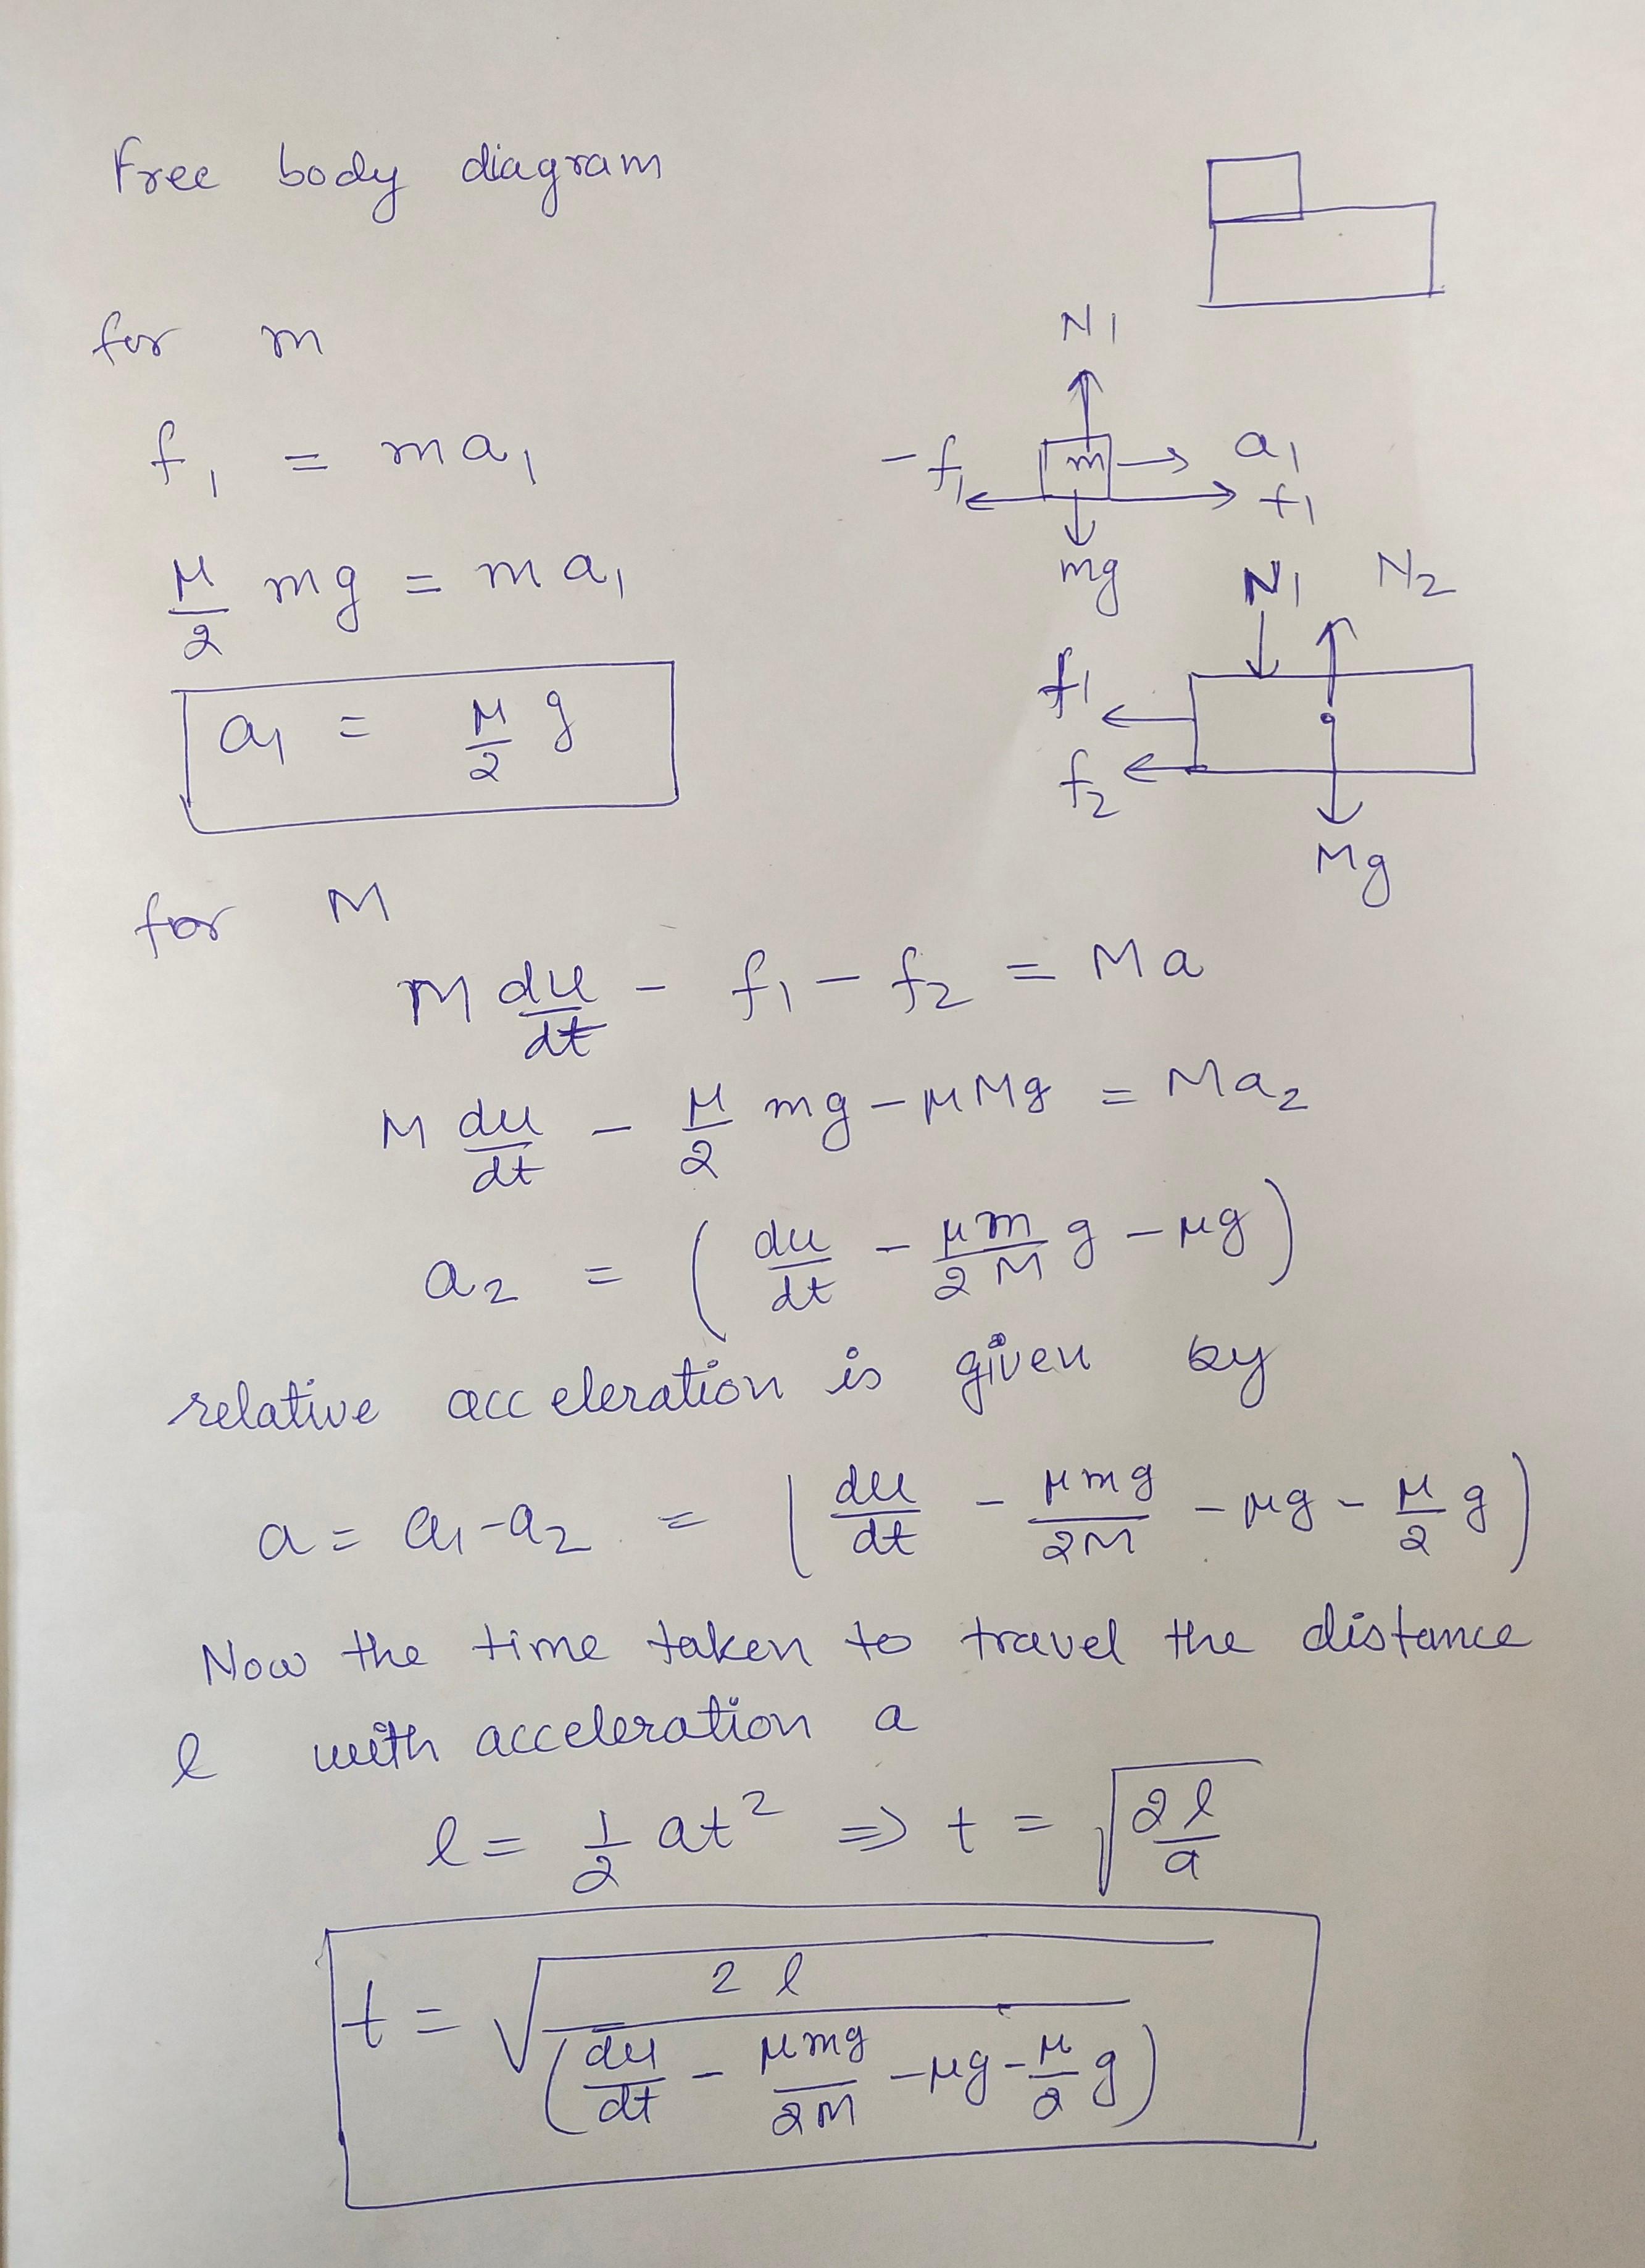 Free body diagram
for m
N1
f1 = ma1
-f1 m → a1
f1
mg
μ/2 mg = ma1
N1 N2
a1 = μ/2 g
f1
f2
Mg
for M
M du/dt - f1 - f2 = Ma
M du/dt - μ/2 mg - μMg = Ma2
a2 = (du/dt - μm/2M g - μg)
relative acceleration is given by
a = a1-a2 = (du/dt - μmg/2M - μg - μ/2 g)
Now the time taken to travel the distance
l with acceleration a
l = 1/2 at² ⇒ t = √(2l/a)
t = √(2l/(du/dt - μmg/2M - μg - μ/2 g))